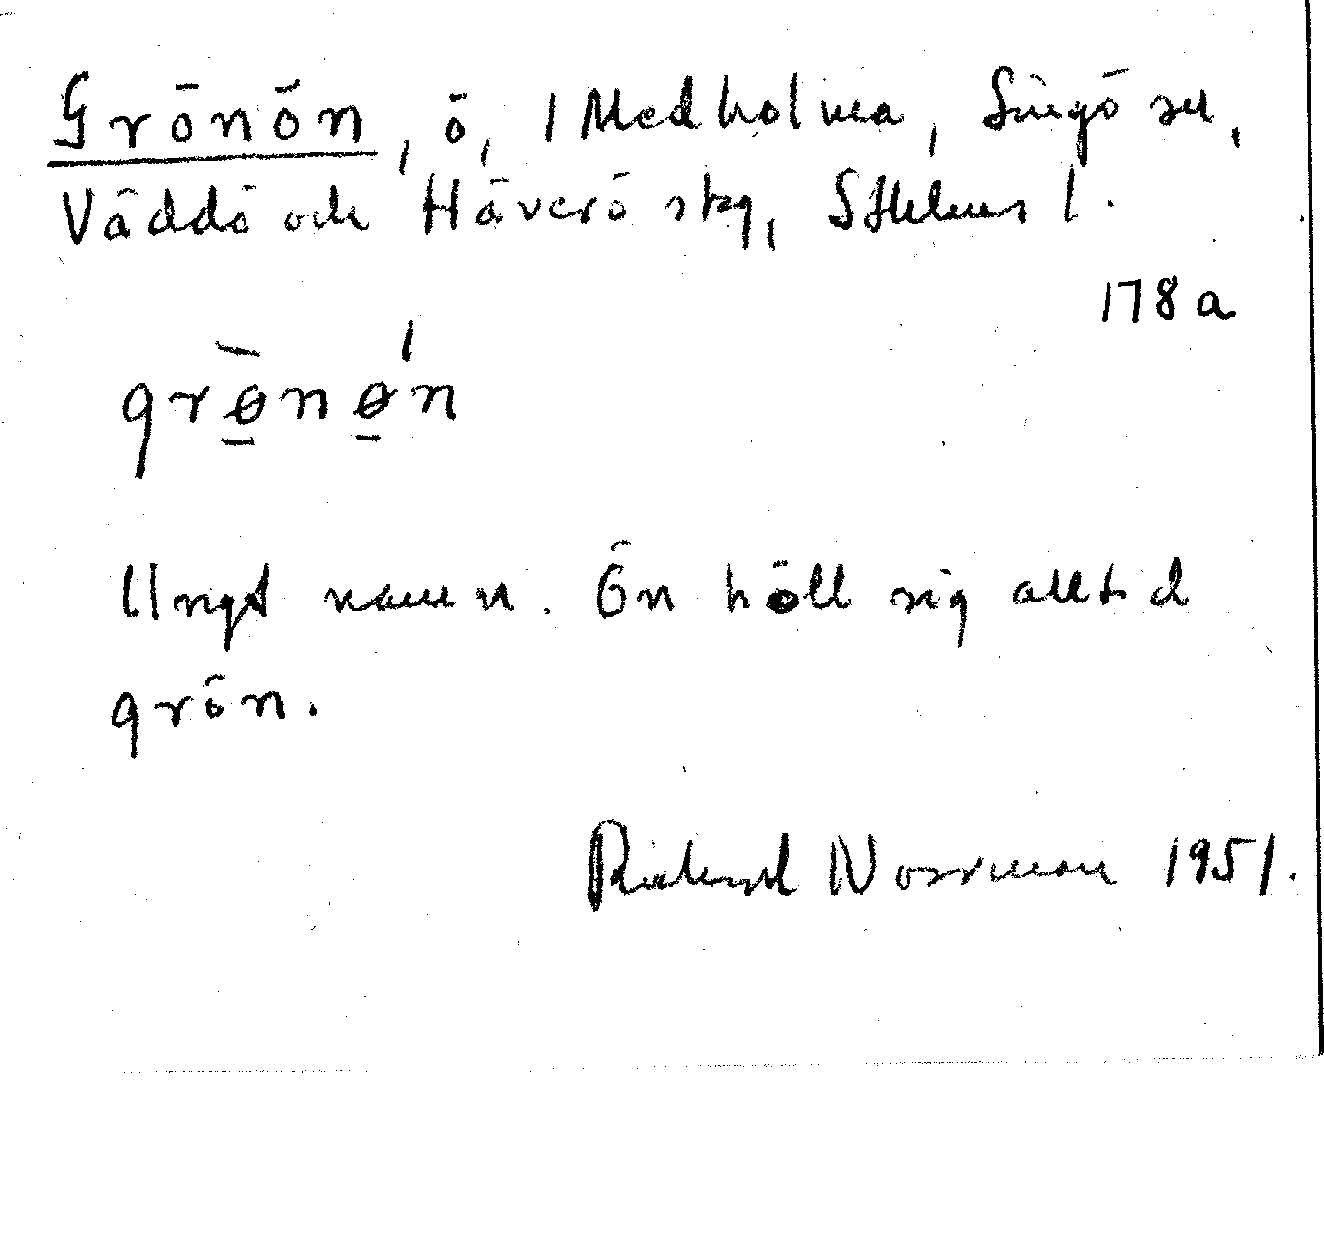 Grönön, ö, i Medholma, Singö sn,
Väddö och Häverö skg, Sthlms l.
178 a
grøn𝑜n
Ungt namn. Ön höll sig alltid
grön.
Richard Norrman 1951.